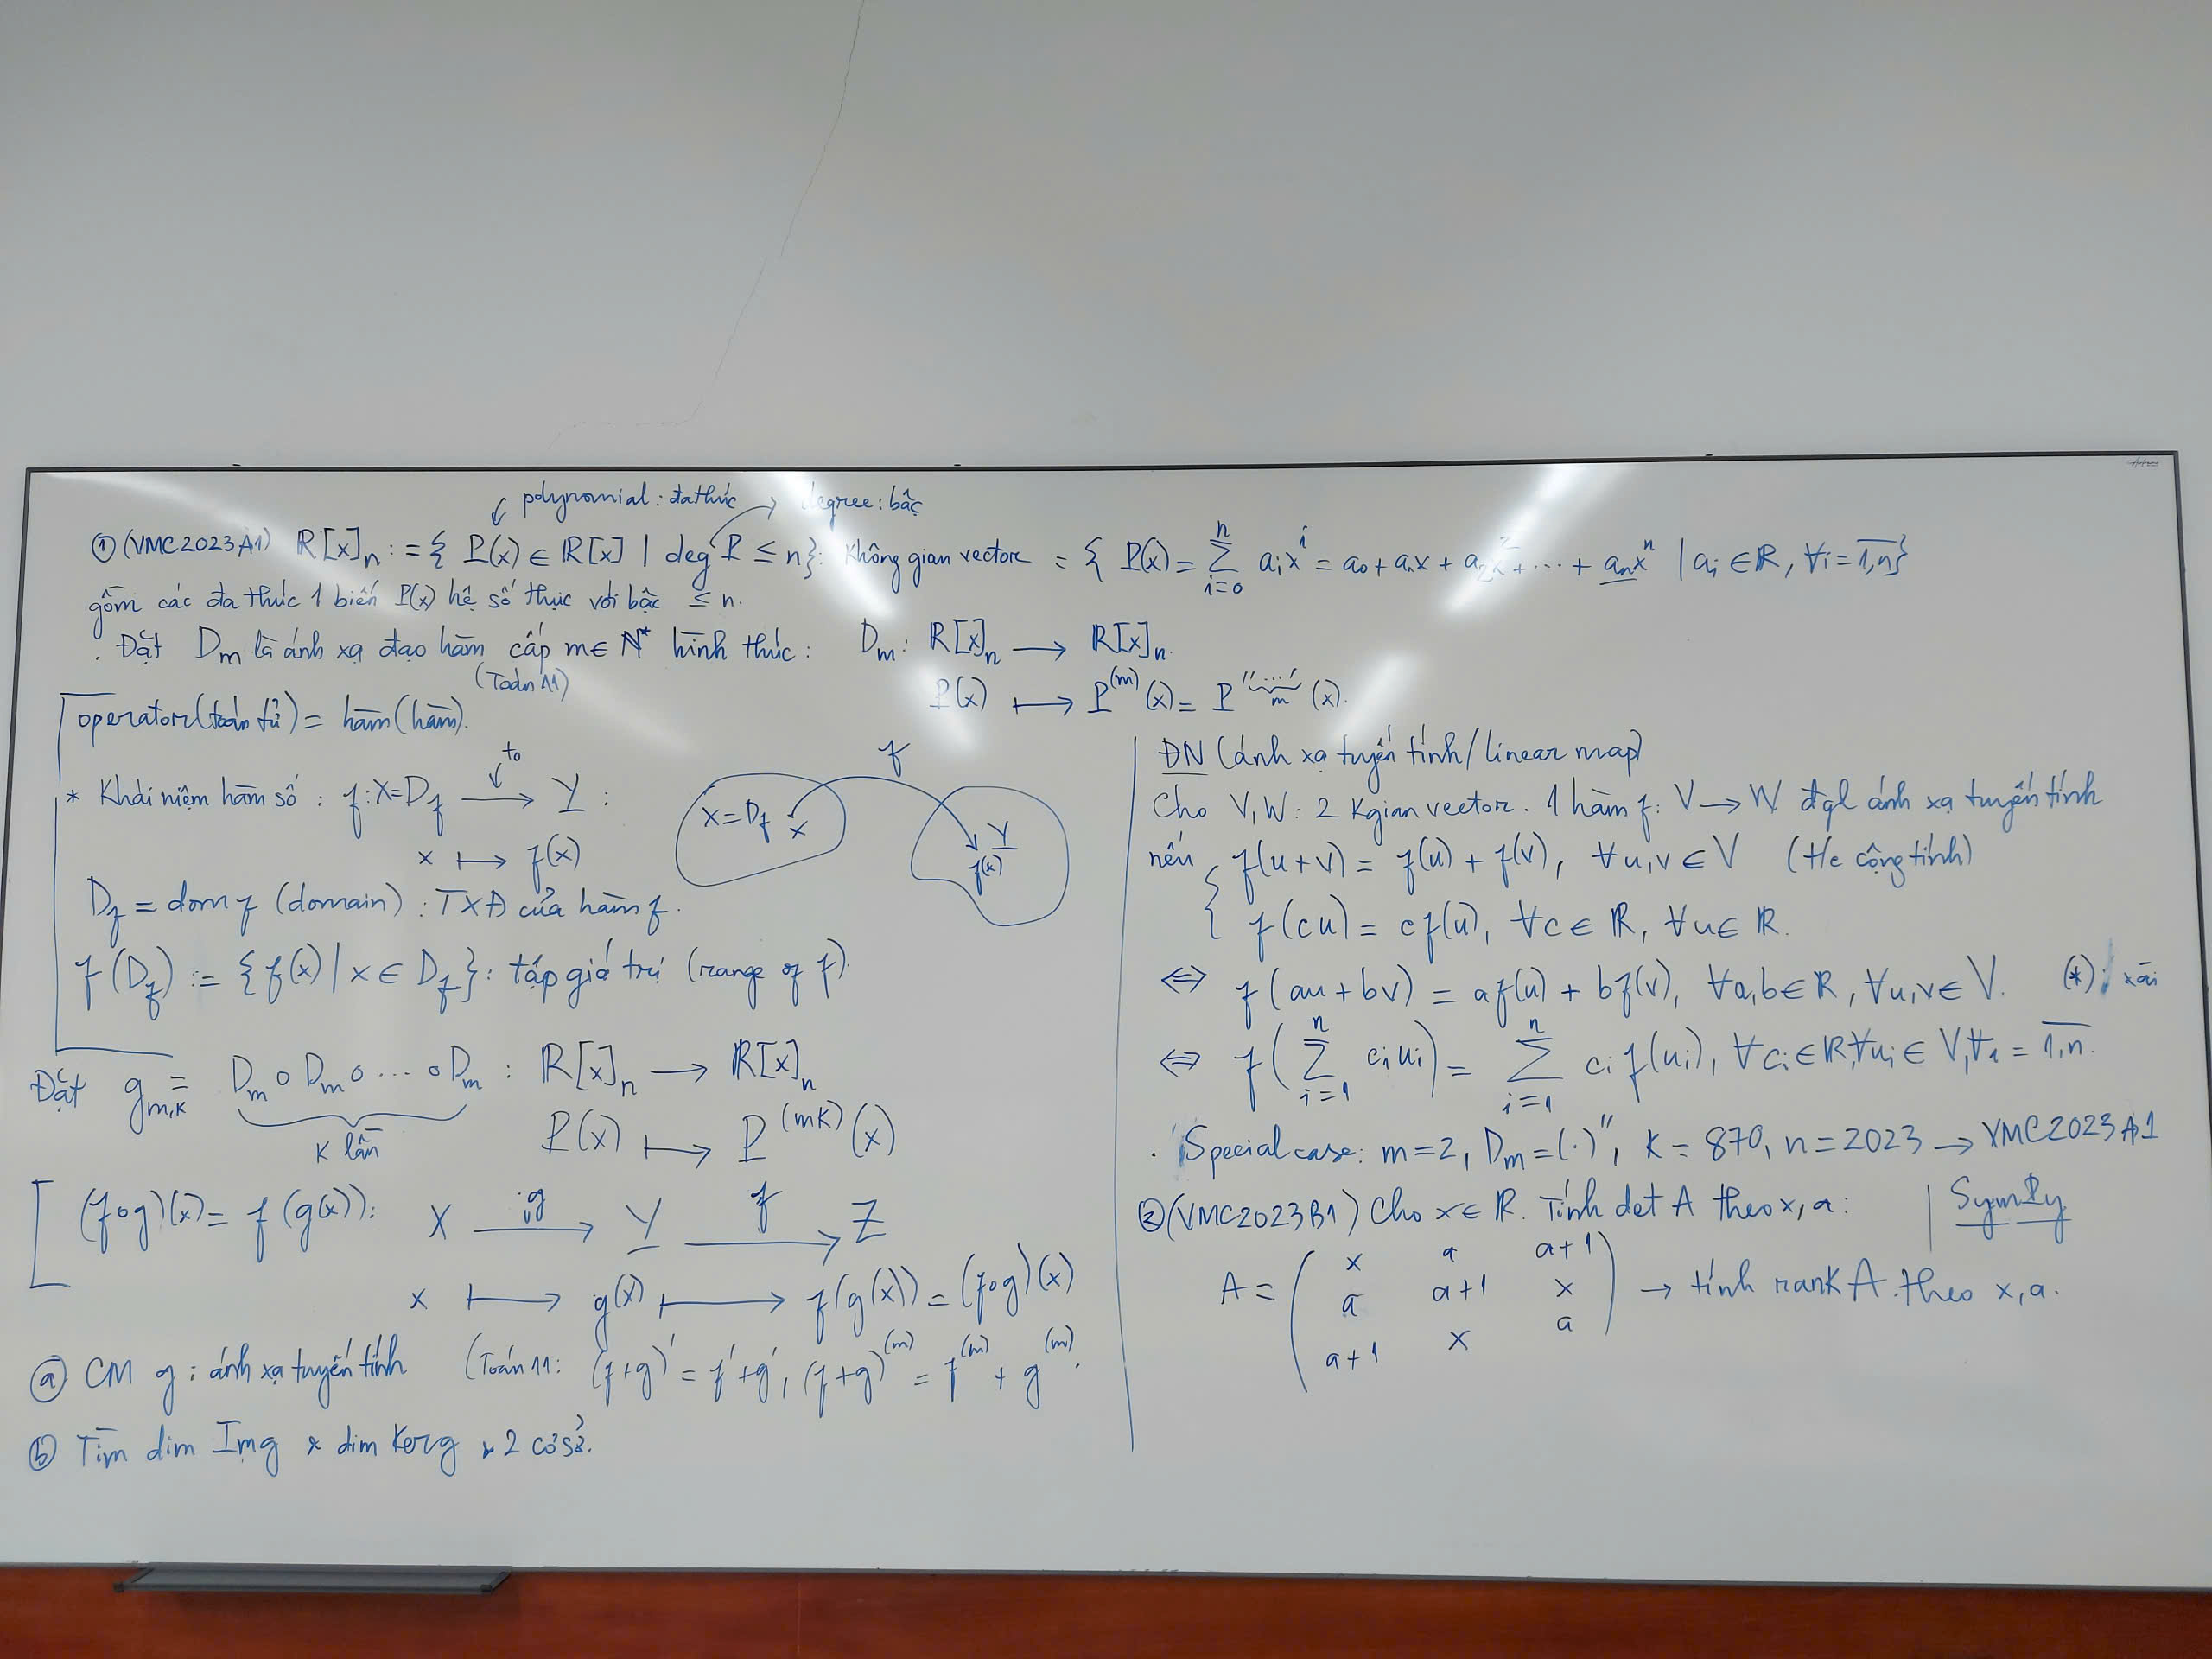 polynomial: đa thức degree: bậc
① (VMC2023A1) ℝ[x]ₙ := { P(x) ∈ ℝ[x] | deg P ≤ n}: Không gian vector = { P(x) = ∑_{i=0}^{n} aᵢxⁱ = a₀ + a₁x + a₂x² + ⋯ + aₙxⁿ | aᵢ ∈ ℝ, ∀i = \overline{1,n}}
gồm các đa thức 1 biến P(x) hệ số thực với bậc ≤ n.
. Đặt Dₘ là ánh xạ đạo hàm cấp m ∈ ℕ* hình thức: Dₘ: ℝ[x]ₙ ⟶ ℝ[x]ₙ.
(Toán 11)
P(x) ⟼ P^{(m)}(x) = P^{''...'}(x).
m
operator (toán tử) = hàm (hàm).
to
* Khái niệm hàm số: f: X = D_f ⟶ Y:
x ⟼ f(x)
f
X = D_f x
Y
f(x)
D_f = dom f (domain): TXĐ của hàm f.
f(D_f) := {f(x) | x ∈ D_f}: tập giá trị (range of f).
Đặt g_{m,k} = Dₘ ∘ Dₘ ∘ ⋯ ∘ Dₘ : ℝ[x]ₙ ⟶ ℝ[x]ₙ
k lần
P(x) ⟼ P^{(mk)}(x)
(f∘g)(x) = f(g(x)): X ⟶^{g} Y ⟶^{f} Z
x ⟼ g(x) ⟼ f(g(x)) = (f∘g)(x)
ⓐ CM g: ánh xạ tuyến tính (Toán 11: (f+g)' = f' + g', (f+g)^{(m)} = f^{(m)} + g^{(m)}.
ⓑ Tìm dim Im g & dim Ker g & 2 cơ sở.
ĐN (ánh xạ tuyến tính/linear map)
Cho V, W: 2 kgian vector. 1 hàm f: V ⟶ W đgl ánh xạ tuyến tính
nếu { f(u+v) = f(u) + f(v), ∀u,v ∈ V (t/c cộng tính)
f(cu) = cf(u), ∀c ∈ ℝ, ∀u ∈ ℝ.
⇔ f(au + bv) = af(u) + bf(v), ∀a,b ∈ ℝ, ∀u,v ∈ V. (*): xài
⇔ f(∑_{i=1}^{n} cᵢuᵢ) = ∑_{i=1}^{n} cᵢf(uᵢ), ∀cᵢ ∈ ℝ, ∀uᵢ ∈ V, ∀i = \overline{1,n}.
. Special case: m = 2, Dₘ = (·)'', k = 870, n = 2023 → VMC2023A1
② (VMC2023B1) Cho x ∈ ℝ. Tính det A theo x, a: | SymPy
A = ( x a a+1
a a+1 x
a+1 x a ) → tính rank A theo x, a.